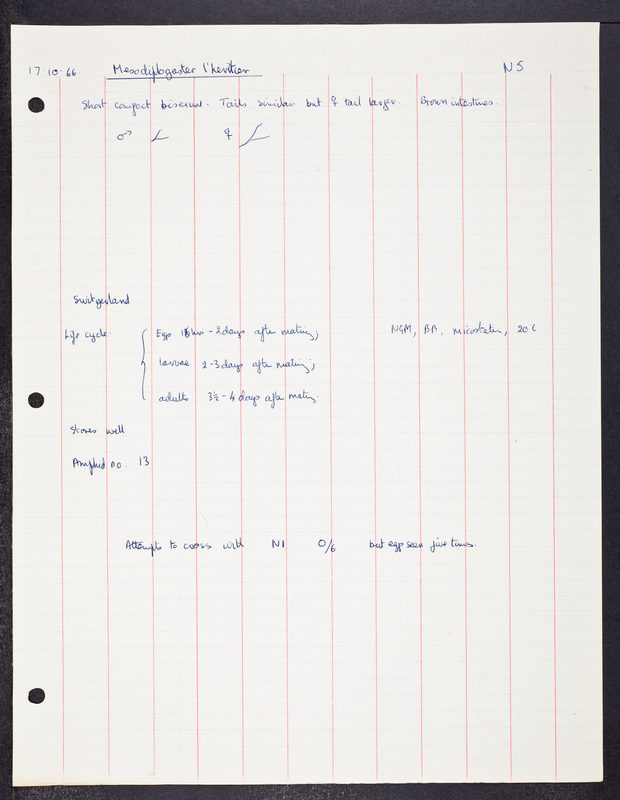 17.10.66. Mesodiplogaster l'heritieri N5
Short compact bisexual. Tails similar but ♀ tail larger. Brown intestines.
♂ ♀
Switzerland
Life cycle { Eggs 18 hrs - 2 days after mating; NGM, BB, microtiter, 20 C
larvae 2-3 days after mating;
adults 3½ - 4 days after mating
Stores well
Amphid no. 13
Attempts to cross with N1 0/6 but eggs seen five times.